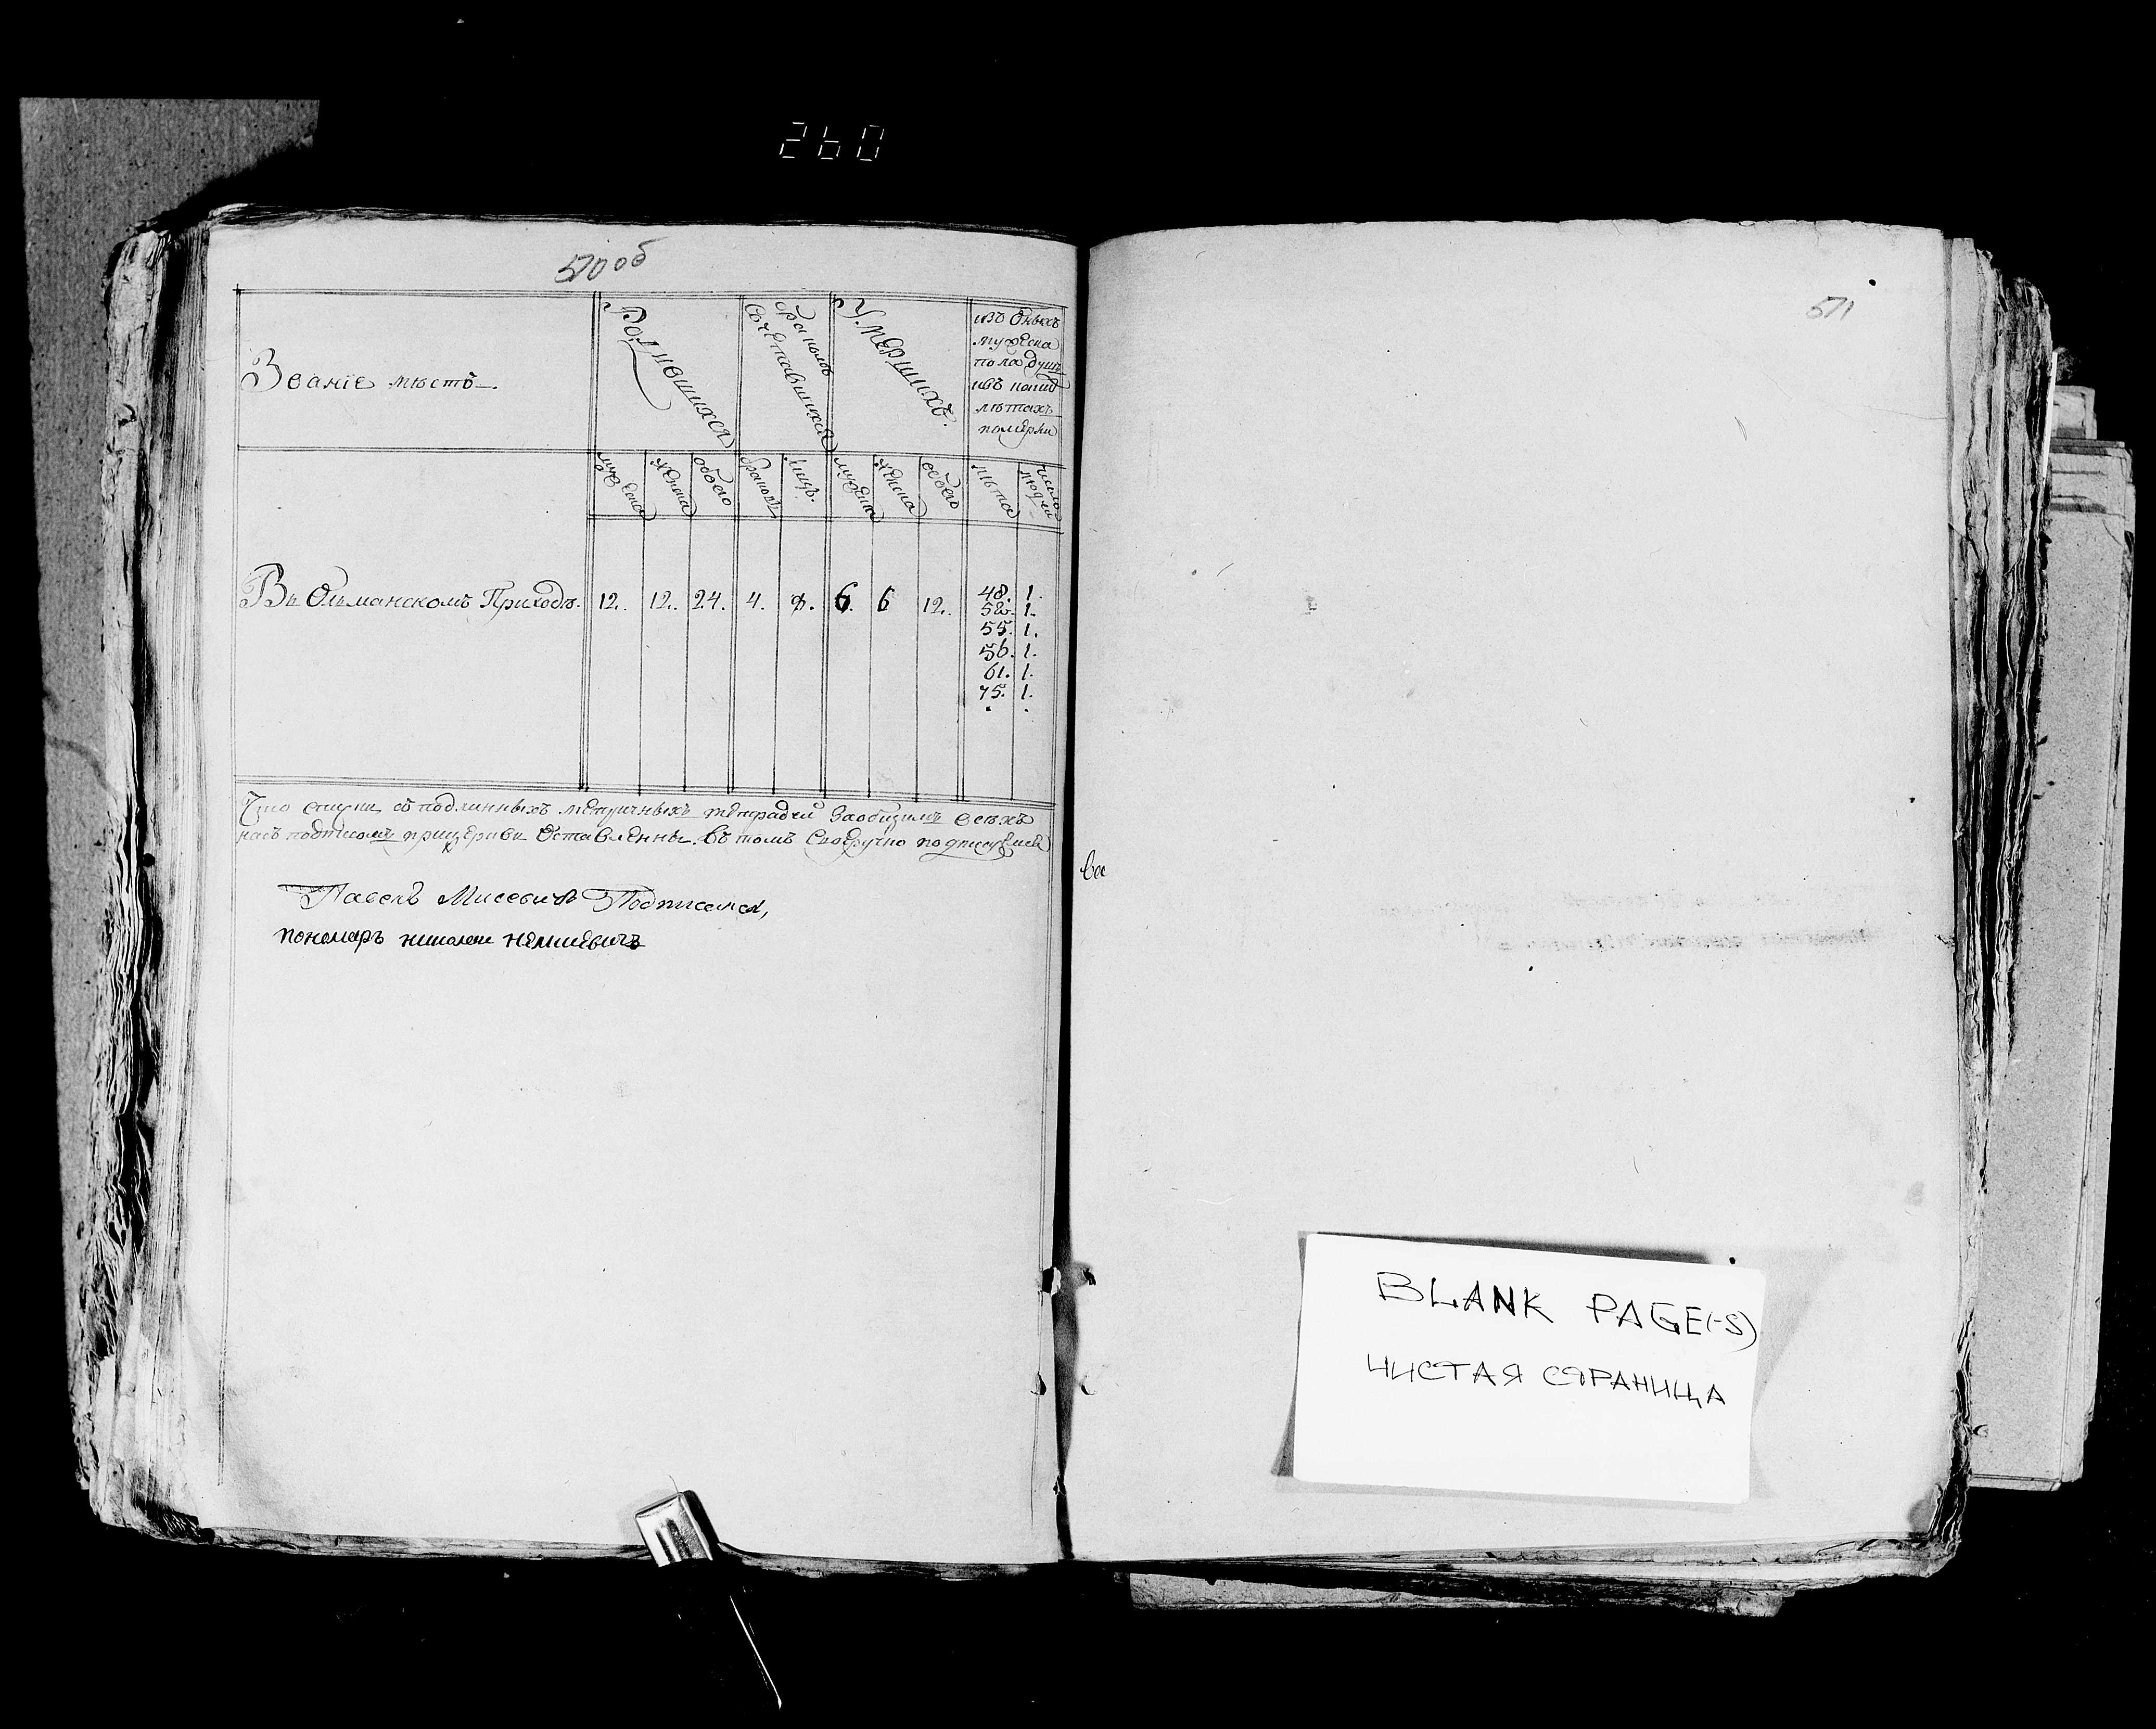 260
570 об
Званїе мѣстъ
Родившихся
бракомъ
Сочетавшихся
Умершихъ.
изъ Оныхъ
мужеска
пола душъ
въ коихъ
лѣтахъ
померли
мужеска
женска
обоего
браковъ
мужеска
женска
обоего
лѣта
число
людей
Въ Ольманскомъ Приходѣ. 12. 12. 24. 4. 8. 6. 6 12.
48. 1.
52. 1.
55. 1.
56. 1.
61. 1.
75. 1.
Что списки съ подлинныхъ метричныхъ тетрадей Заобщимъ всѣхъ
насъ подписомъ прицеркви Оставленны. въ томъ Своеручно подписуемся
Павелъ Мисевичъ Подписался,
пономаръ николай
571
BLANK PAGE(-S)
ЧИСТАЯ СТРАНИЦА